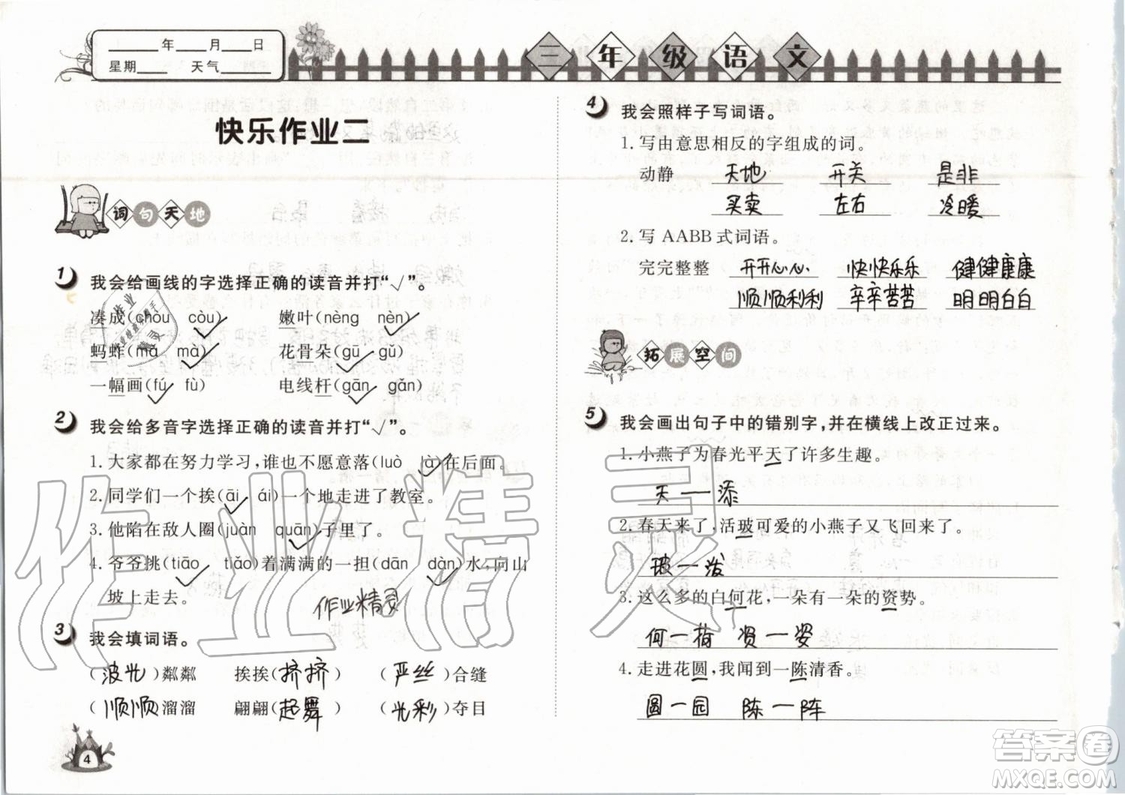 ____年____月____日
星期____ 天气____
三年级语文
快乐作业二
词句天地
1 我会给画线的字选择正确的读音并打“√”。
凑成(chòu còu√) 嫩叶(nèng nèn√)
蚂蚱(mǎ mà√) 花骨朵(gū√ gǔ)
一幅画(fú√ fù) 电线杆(gān√ gǎn)
2 我会给多音字选择正确的读音并打“√”。
1. 大家都在努力学习，谁也不愿意落(luò là√)在后面。
2. 同学们一个挨(āi√ ái)一个地走进了教室。
3. 他陷在敌人圈(juàn quān√)子里了。
4. 爷爷挑(tiāo√ tiǎo)着满满的一担(dān dàn√)水，向山
坡上走去。
作业精灵
3 我会填词语。
(波光)粼粼 挨挨(挤挤) (严丝)合缝
(顺顺)溜溜 翩翩(起舞) (光彩)夺目
4
4 我会照样子写词语。
1. 写由意思相反的字组成的词。
动静 天地 开关 是非
买卖 左右 冷暖
2. 写 AABB 式词语。
完完整整 开开心心 快快乐乐 健健康康
顺顺利利 辛辛苦苦 明明白白
拓展空间
5 我会画出句子中的错别字，并在横线上改正过来。
1. 小燕子为春光平天了许多生趣。
天—添
2. 春天来了，活玻可爱的小燕子又飞回来了。
玻—泼
3. 这么多的白何花，一朵有一朵的资势。
何—荷 资—姿
4. 走进花圆，我闻到一陈清香。
圆—园 陈—阵
作业精灵
答案圈
MXQE.COM